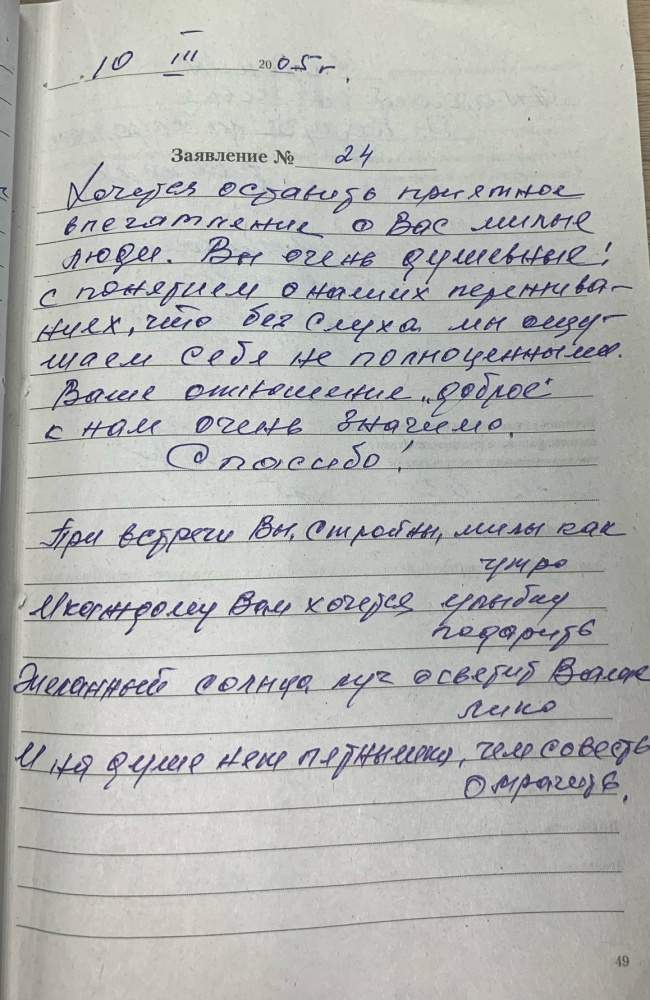 10 III 2005 г.
Заявление № 24
Хочется оставить приятное
впечатление о Вас милые
люди. Вы очень душевные!
с понятием о наших пережива-
ниях, что без слуха мы ощу-
щаем себя не полноценными.
Ваше отношение „доброе"
к нам очень значимо.
Спасибо!
При встречи Вы, стройны, милы как
утро
И каждому Вам хочется улыбку
подарить
Желанный солнца луч осветит Ваше
лицо
И на душе нет пятнышка, чем совесть
омрачить.
49